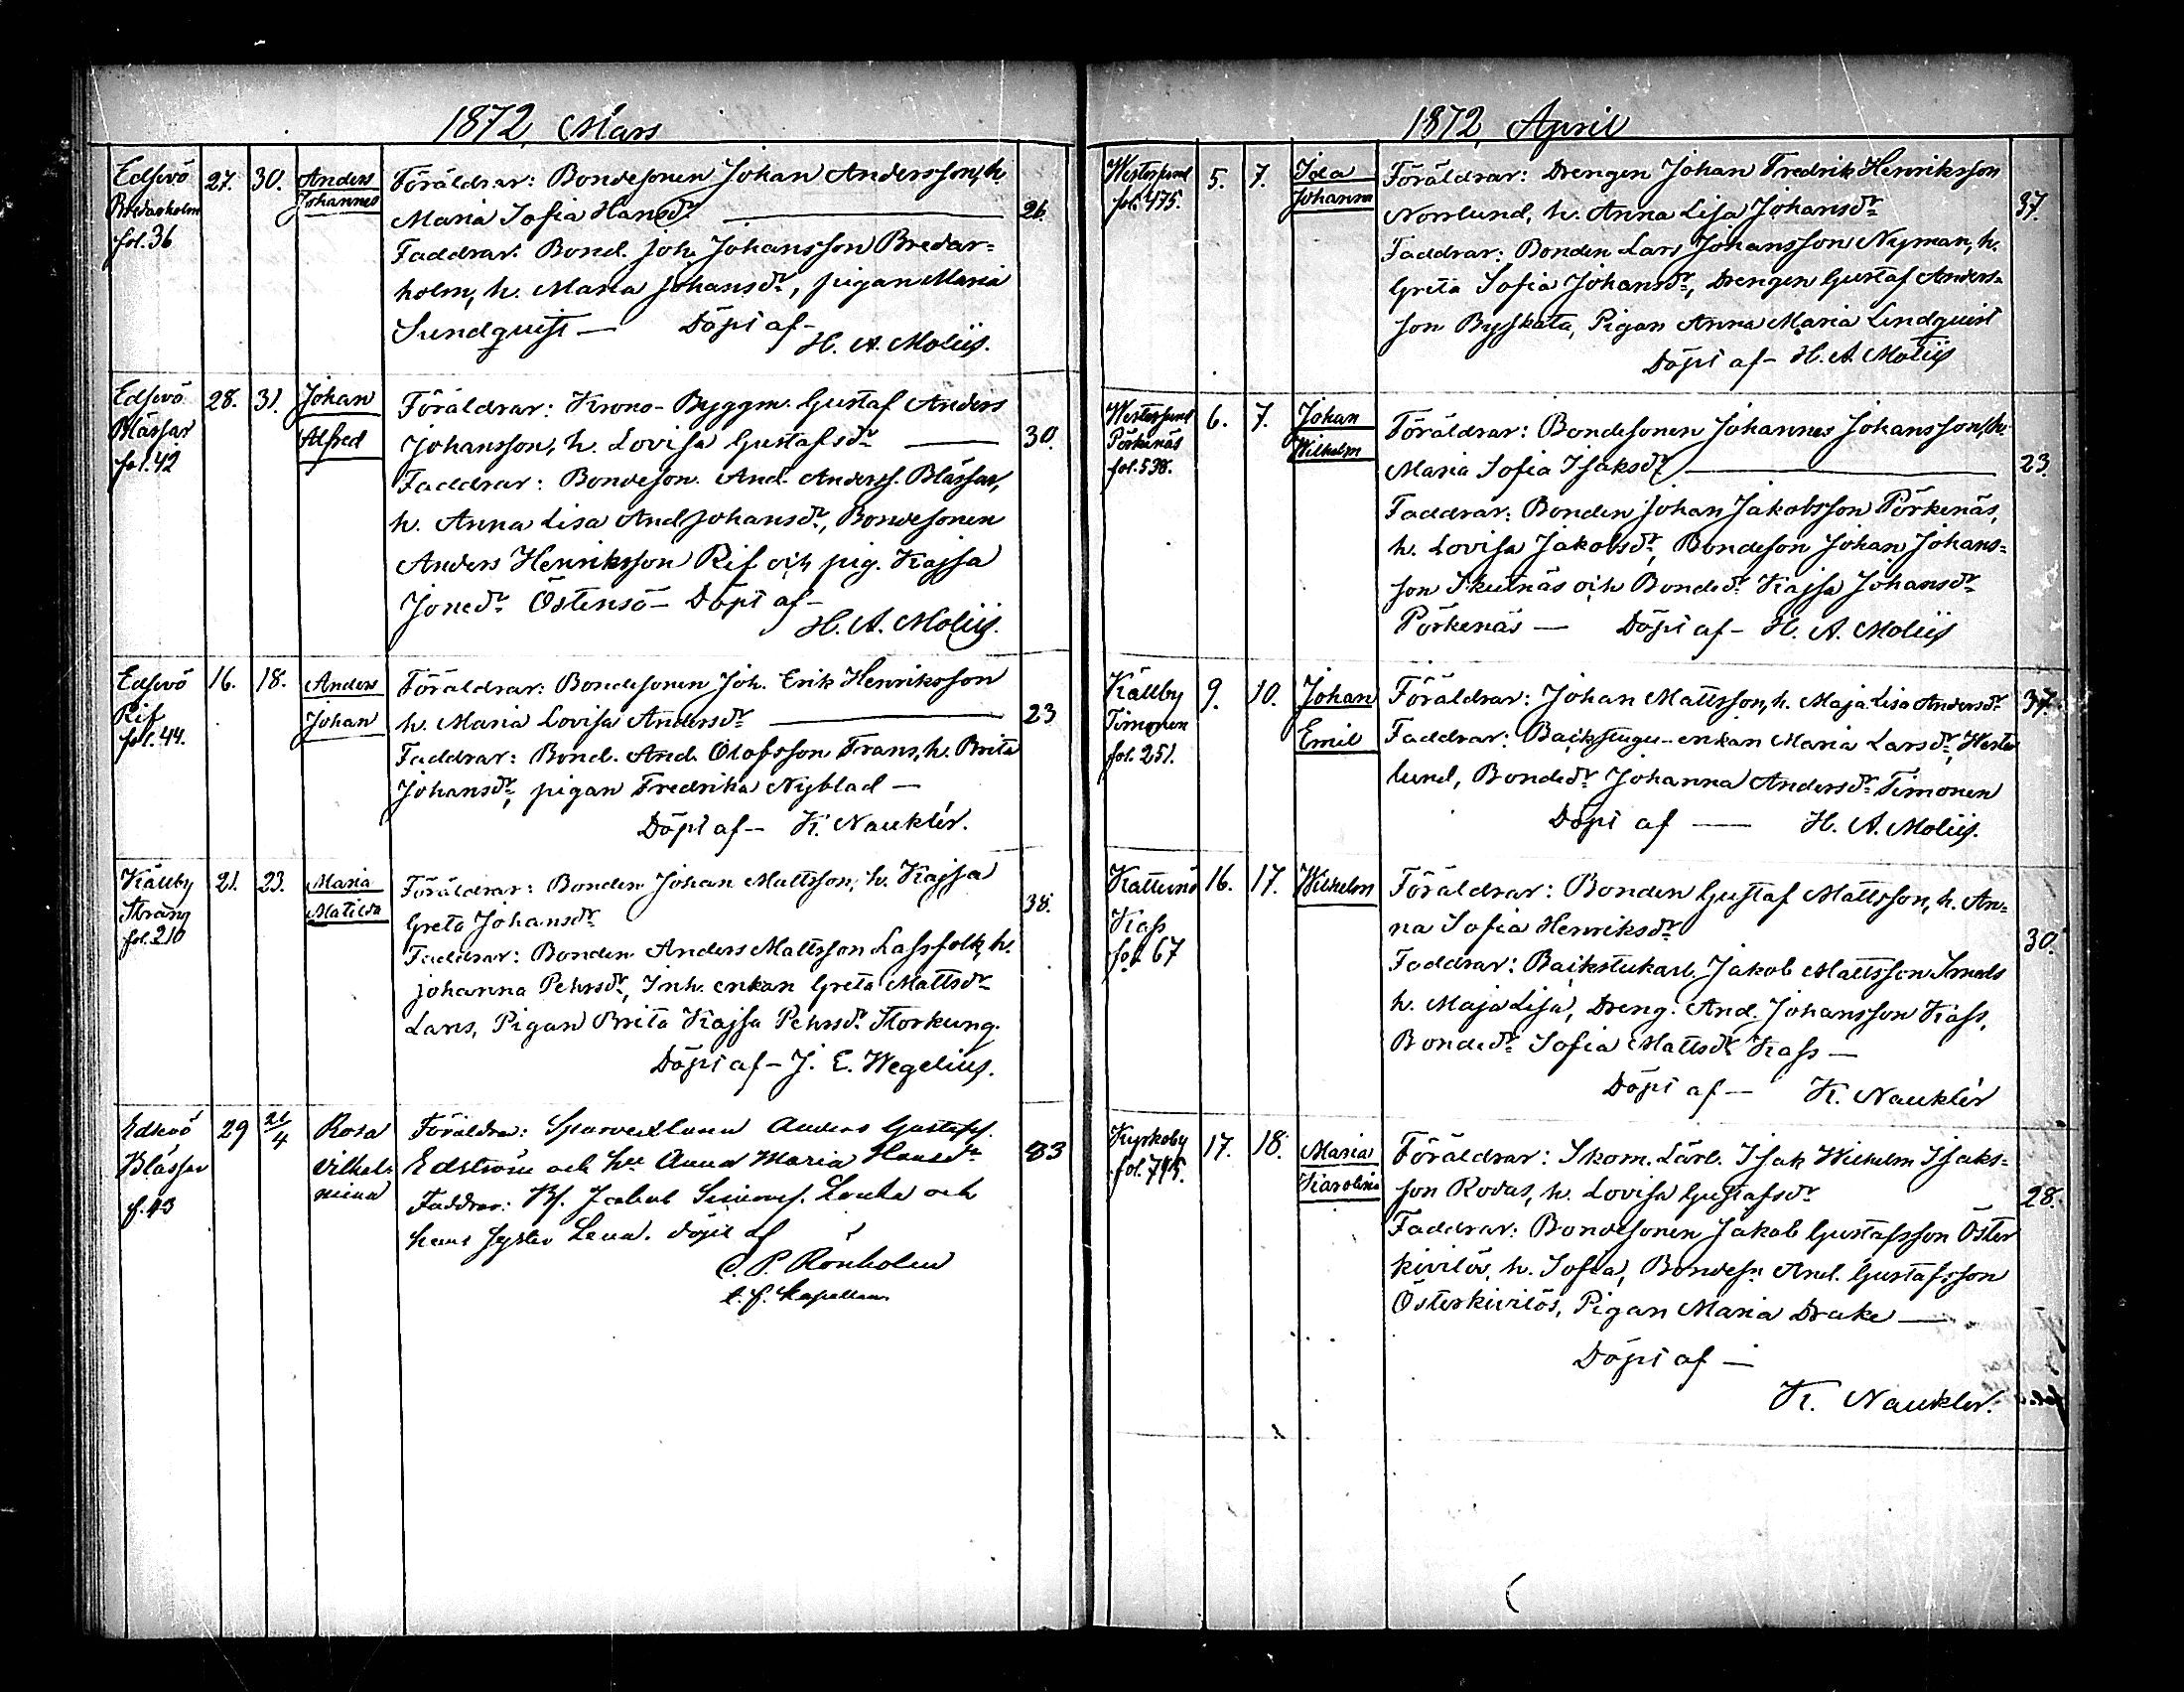 1872, Mars
Edsevö 27. 30. Anders Föräldrar: Bondesonen Johan Andersson, h.
Bredarholm Johannes Maria Sofia Hansdr 26.
fol. 36 Faddrar: Bond. Joh. Johansson Bredar=
holm, h. Maria Johansdr, pigan Maria
Sundquist — Döpt af —
H. A. Moliis.
Edsevö 28. 31. Johan Föräldrar: Krono-Byggm. Gustaf Anders
Blässar Alfred Johansson, h. Lovisa Gustafsdr 30.
fol. 42 Faddrar: Bondeson. And. Anderss. Blässar,
h. Anna Lisa And Johansdr, Bondesonen
Anders Henriksson Rif och pig. Kajsa
Jonedr Östensö — Döpt af —
H. A. Moliis.
Edsevö 16. 18. Anders Föräldrar: Bondesonen Joh. Erik Henriksson
Rif Johan h. Maria Lovisa Andersdr 23
fol. 44. Faddrar: Bond. And. Olofsson Frans, h. Brita
Johansdr, pigan Fredrika Nyblad —
Döpt af — K. Nauklér.
Källby 21. 23. Maria Föräldrar: Bonden Johan Mattsson, h. Kajsa
Strang Matilda Greta Johansdr 38.
fol. 210 Faddrar: Bonden Anders Mattsson Lassfolk, h.
Johanna Pehrsdr, Inh. enkan Greta Mattsdr
Lars, Pigan Brita Kajsa Pehrsdr Storkung.
Döpt af — J. E. Wegelius.
Edsevö 29 21/4 Rosa Föräldrar: Anders Gustafss.
Blässar Vilhel- Edström och hu Anna Maria Hansdr 33
f. 43 mina Faddrar: Bs. Jakob Simonss. och
hans syster Lena. döpt af
P. Rönholm
t. f. kapellan
1872, April
Westersund 5. 7. Ida Föräldrar: Drengen Johan Fredrik Henriksson
fol. 475. Johanna Norrlund, h. Anna Lisa Johansdr 37.
Faddrar: Bonden Lars Johansson Nyman, h.
Greta Sofia Johansdr, Drengen Gustaf Anders=
son Byskata, Pigan Anna Maria Lindquist
Döpt af — H. A. Moliis
Westersund 6. 7. Johan Föräldrar: Bondesonen Johannes Johansson, h.
Pörkenäs Wilhelm Maria Sofia Isaksdr 23.
fol. 538. Faddrar: Bonden Johan Jakobsson Pörkenäs,
h. Lovisa Jakobsdr, Bondeson Johan Johans=
son Skutnäs och Bondedr Kajsa Johansdr
Pörkenäs — Döpt af — H. A. Moliis
Källby 9. 10. Johan Föräldrar: Johan Mattsson, h. Maja Lisa Andersdr 37.
Timonen Emil Faddrar: Backstugu-enkan Maria Larsdr Wester
fol. 251. lund, Bondedr Johanna Andersdr Timonen
Döpt af — H. A. Moliis.
Katternö 16. 17. Wilhelm Föräldrar: Bonden Gustaf Mattsson, h. An=
Kass na Sofia Henriksdr 30.
fol. 67 Faddrar: Backstukarl. Jakob Mattsson Smeds
h. Maja Lisa, Dreng. And. Johansson Kass,
Bondedr Sofia Mattsdr Kass —
Döpt af — K. Nauklér
Kyrkoby 17. 18. Maria Föräldrar: Skom. Lärl. Isak Wilhelm Isaks=
fol. 795. Karolina son Rodas, h. Lovisa Gustafsdr 28.
Faddrar: Bondesonen Jakob Gustafsson Öster
kivilös, h. Sofia, Bondesn And. Gustafsson
Österkivilös, Pigan Maria Drake —
Döpt af —
K. Nauklér.